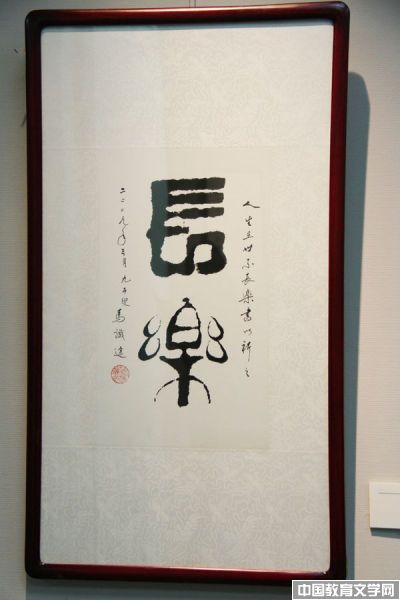 長樂
人生在世不長樂書以祈之
二〇〇九年五月九五叟
馬識途
中国教育文学网